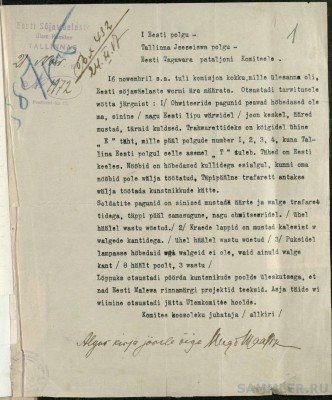 Eesti Sõjawäelaste
TALLINNAS
1972
1
I Eesti polgu -
Tallinna Jeeseiswa polgu -
Eesti Tagawara pataljoni Komiteele.
16 novembril s.a. tuli komisjon kokku, mille ülesanne oli,
Eesti sõjawäelaste wormi ära määrata. Otsustati tarwitusele
wõtta järgmist: 1/ Ohwitseride pagunid peawad hõbedased ole
ma, sinine / nagu Eesti lipu wärwidel / joon keskel, ääred
mustad, tärnid kuldsed. Trahwarettideks on kõigidel ühine
"E" täht, mille pääl polgude number 1, 2, 3, 4, kuna Tal
lina Eesti polgul selle asemel "T" tuleb. Tähed on Eesti
keeles. Nööbid on hõbedased kullidega esialgul, kunni oma
nööbid pole wälja töötatud, Tüpipäälne trafarett antakse
wälja töötada kunstnikkude kätte.
Soldatite pagunid on sinized mustade äärte ja walge trafare
tidega, tüpi pääl samasugune, nagu ohwitseridel. / Ühel
häälel wastu wõetud./ 2/ Kraede lappid on mustad kalewist w
walgede kantidega. / Ühel häälel wastu wõetud / 3/ Puksidel
lampasse hõbedaid ega walgeid ei ole, waid ainult walge
kant / 8 häält poolt, 3 wastu /
Lõppuks otsustati pöörda kunstnikude poole üleskutsega, et
nad Eesti Malewa rinnamärgi projektid teeksid. Asja täide wi
wiimine otsustati jätta Ülemkomitee hoolde.
Komitee koosoleku juhataja / allkiri /
Algus kirja järele õige
SAMMLER.RU